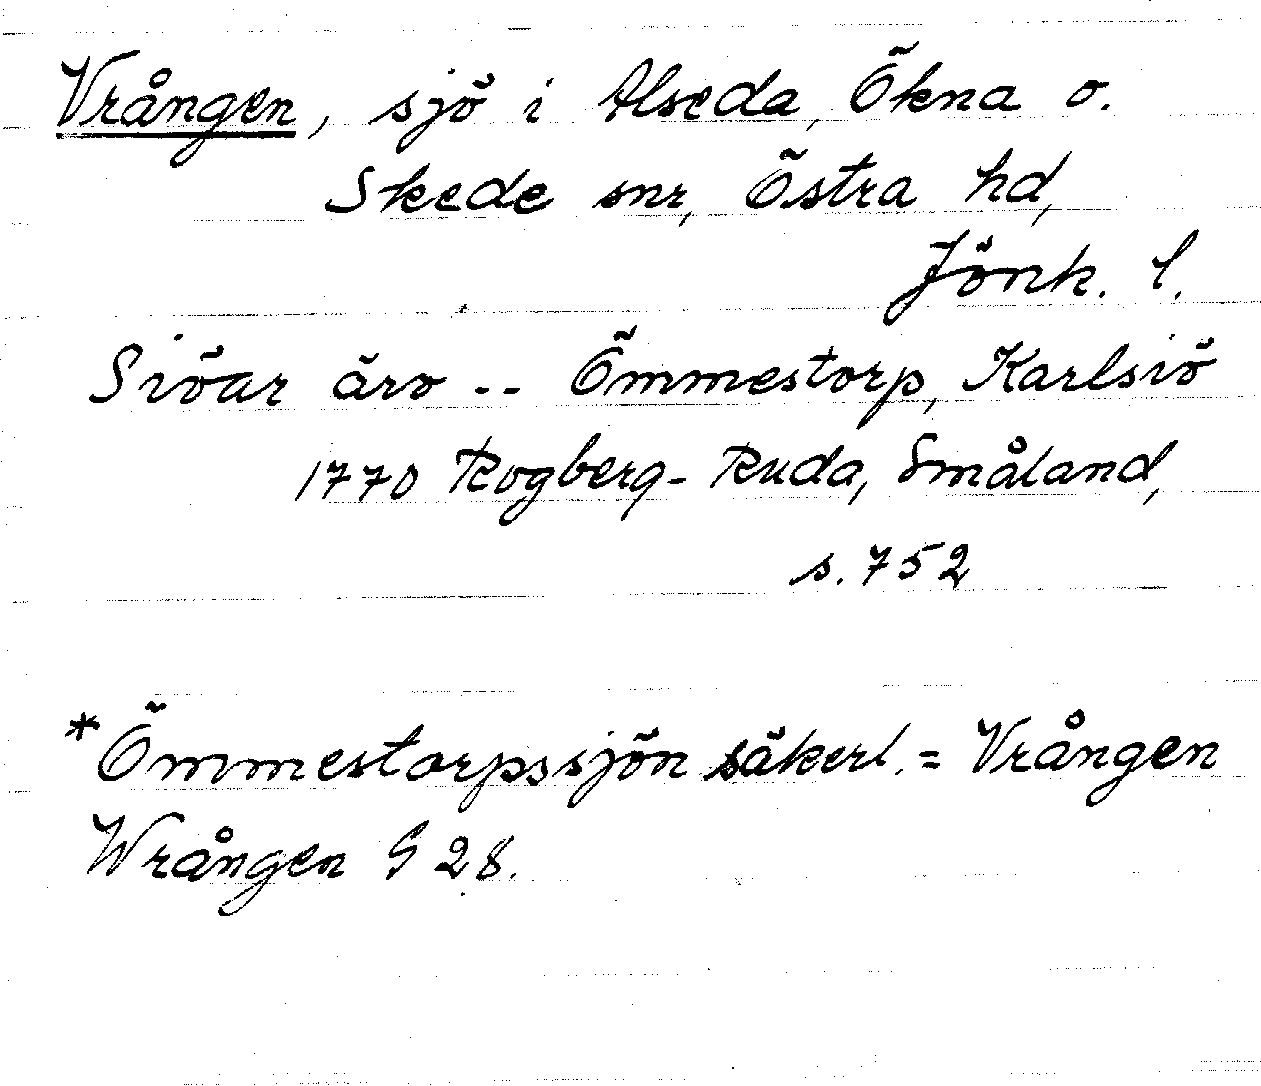 Vrången, sjö i Alseda, Ökna o.
Skede snr, Östra hd,
Jönk. l.
Siöar äro -- Ömmestorp, Karlsiö
1770 Rogberg-Ruda, Småland,
s. 752
*Ömmestorpssjön säkerl. = Vrången
Wrången G 28.